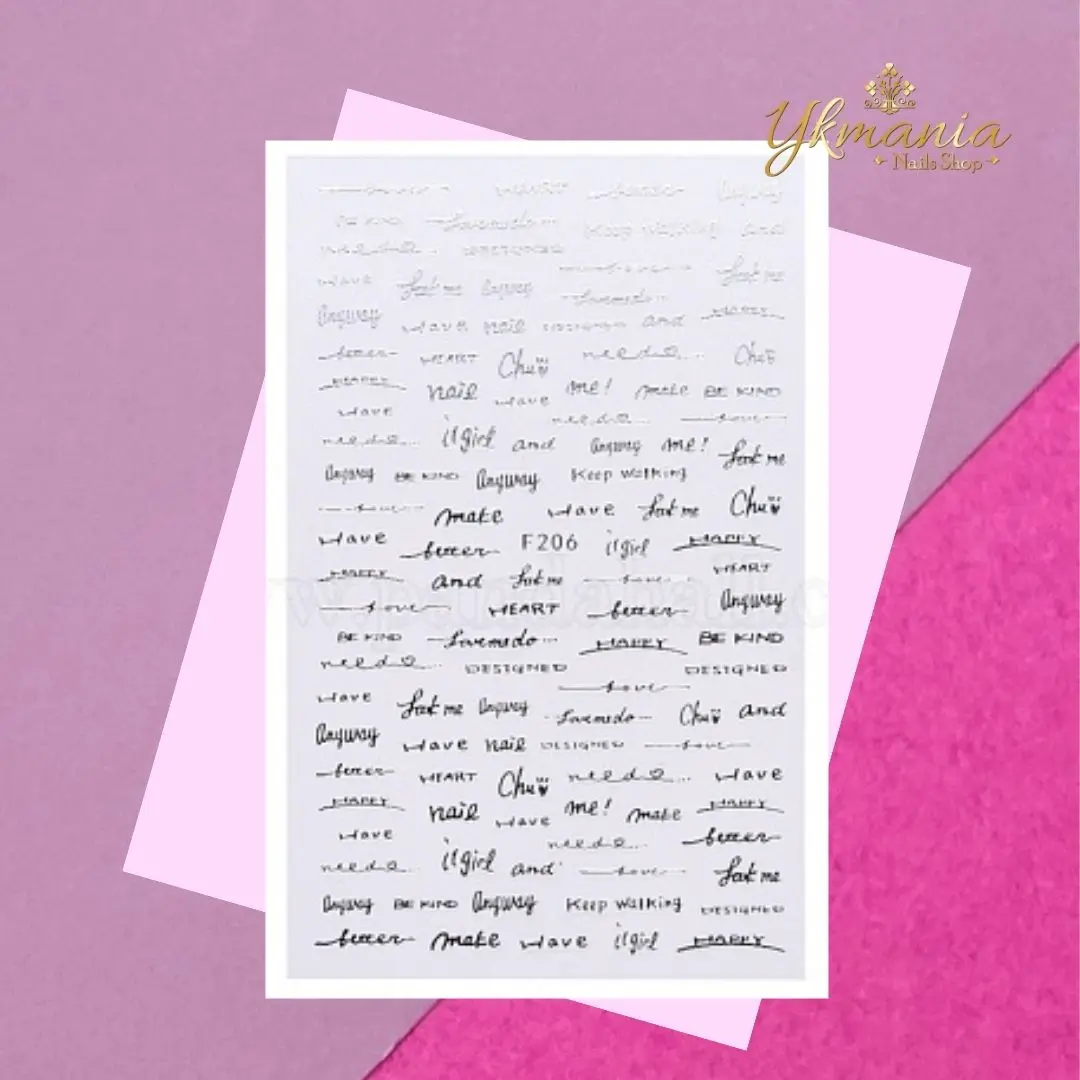 Ykmania
Nails Shop
love HEART better Anyway
BE KIND Lovemedo... Keep Walking and
need a... DESIGNED
wave look me Anyway love look me
Lovemedo...
Anyway wave nail DESIGNED and HAPPY
better HEART Chu need a... Chu
HAPPY nail wave me! make BE KIND
wave need a... love
need a... it girl and Anyway me! look me
Anyway BE KIND Anyway Keep Walking
love make wave look me Chu
wave better F206 it girl HAPPY
HAPPY and look me love HEART
love HEART better Anyway
BE KIND Lovemedo... HAPPY BE KIND
need a... DESIGNED DESIGNED
love
wave look me Anyway Lovemedo... Chu and
Anyway wave nail DESIGNED love
better HEART Chu need a... wave
HAPPY nail wave me! make HAPPY
wave need a... better
need a... it girl and love look me
Anyway BE KIND Anyway Keep Walking DESIGNED
better make wave it girl HAPPY